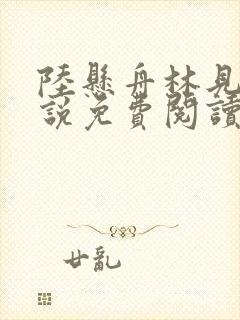 陸懸舟林見
說免費閱讀
廿亂